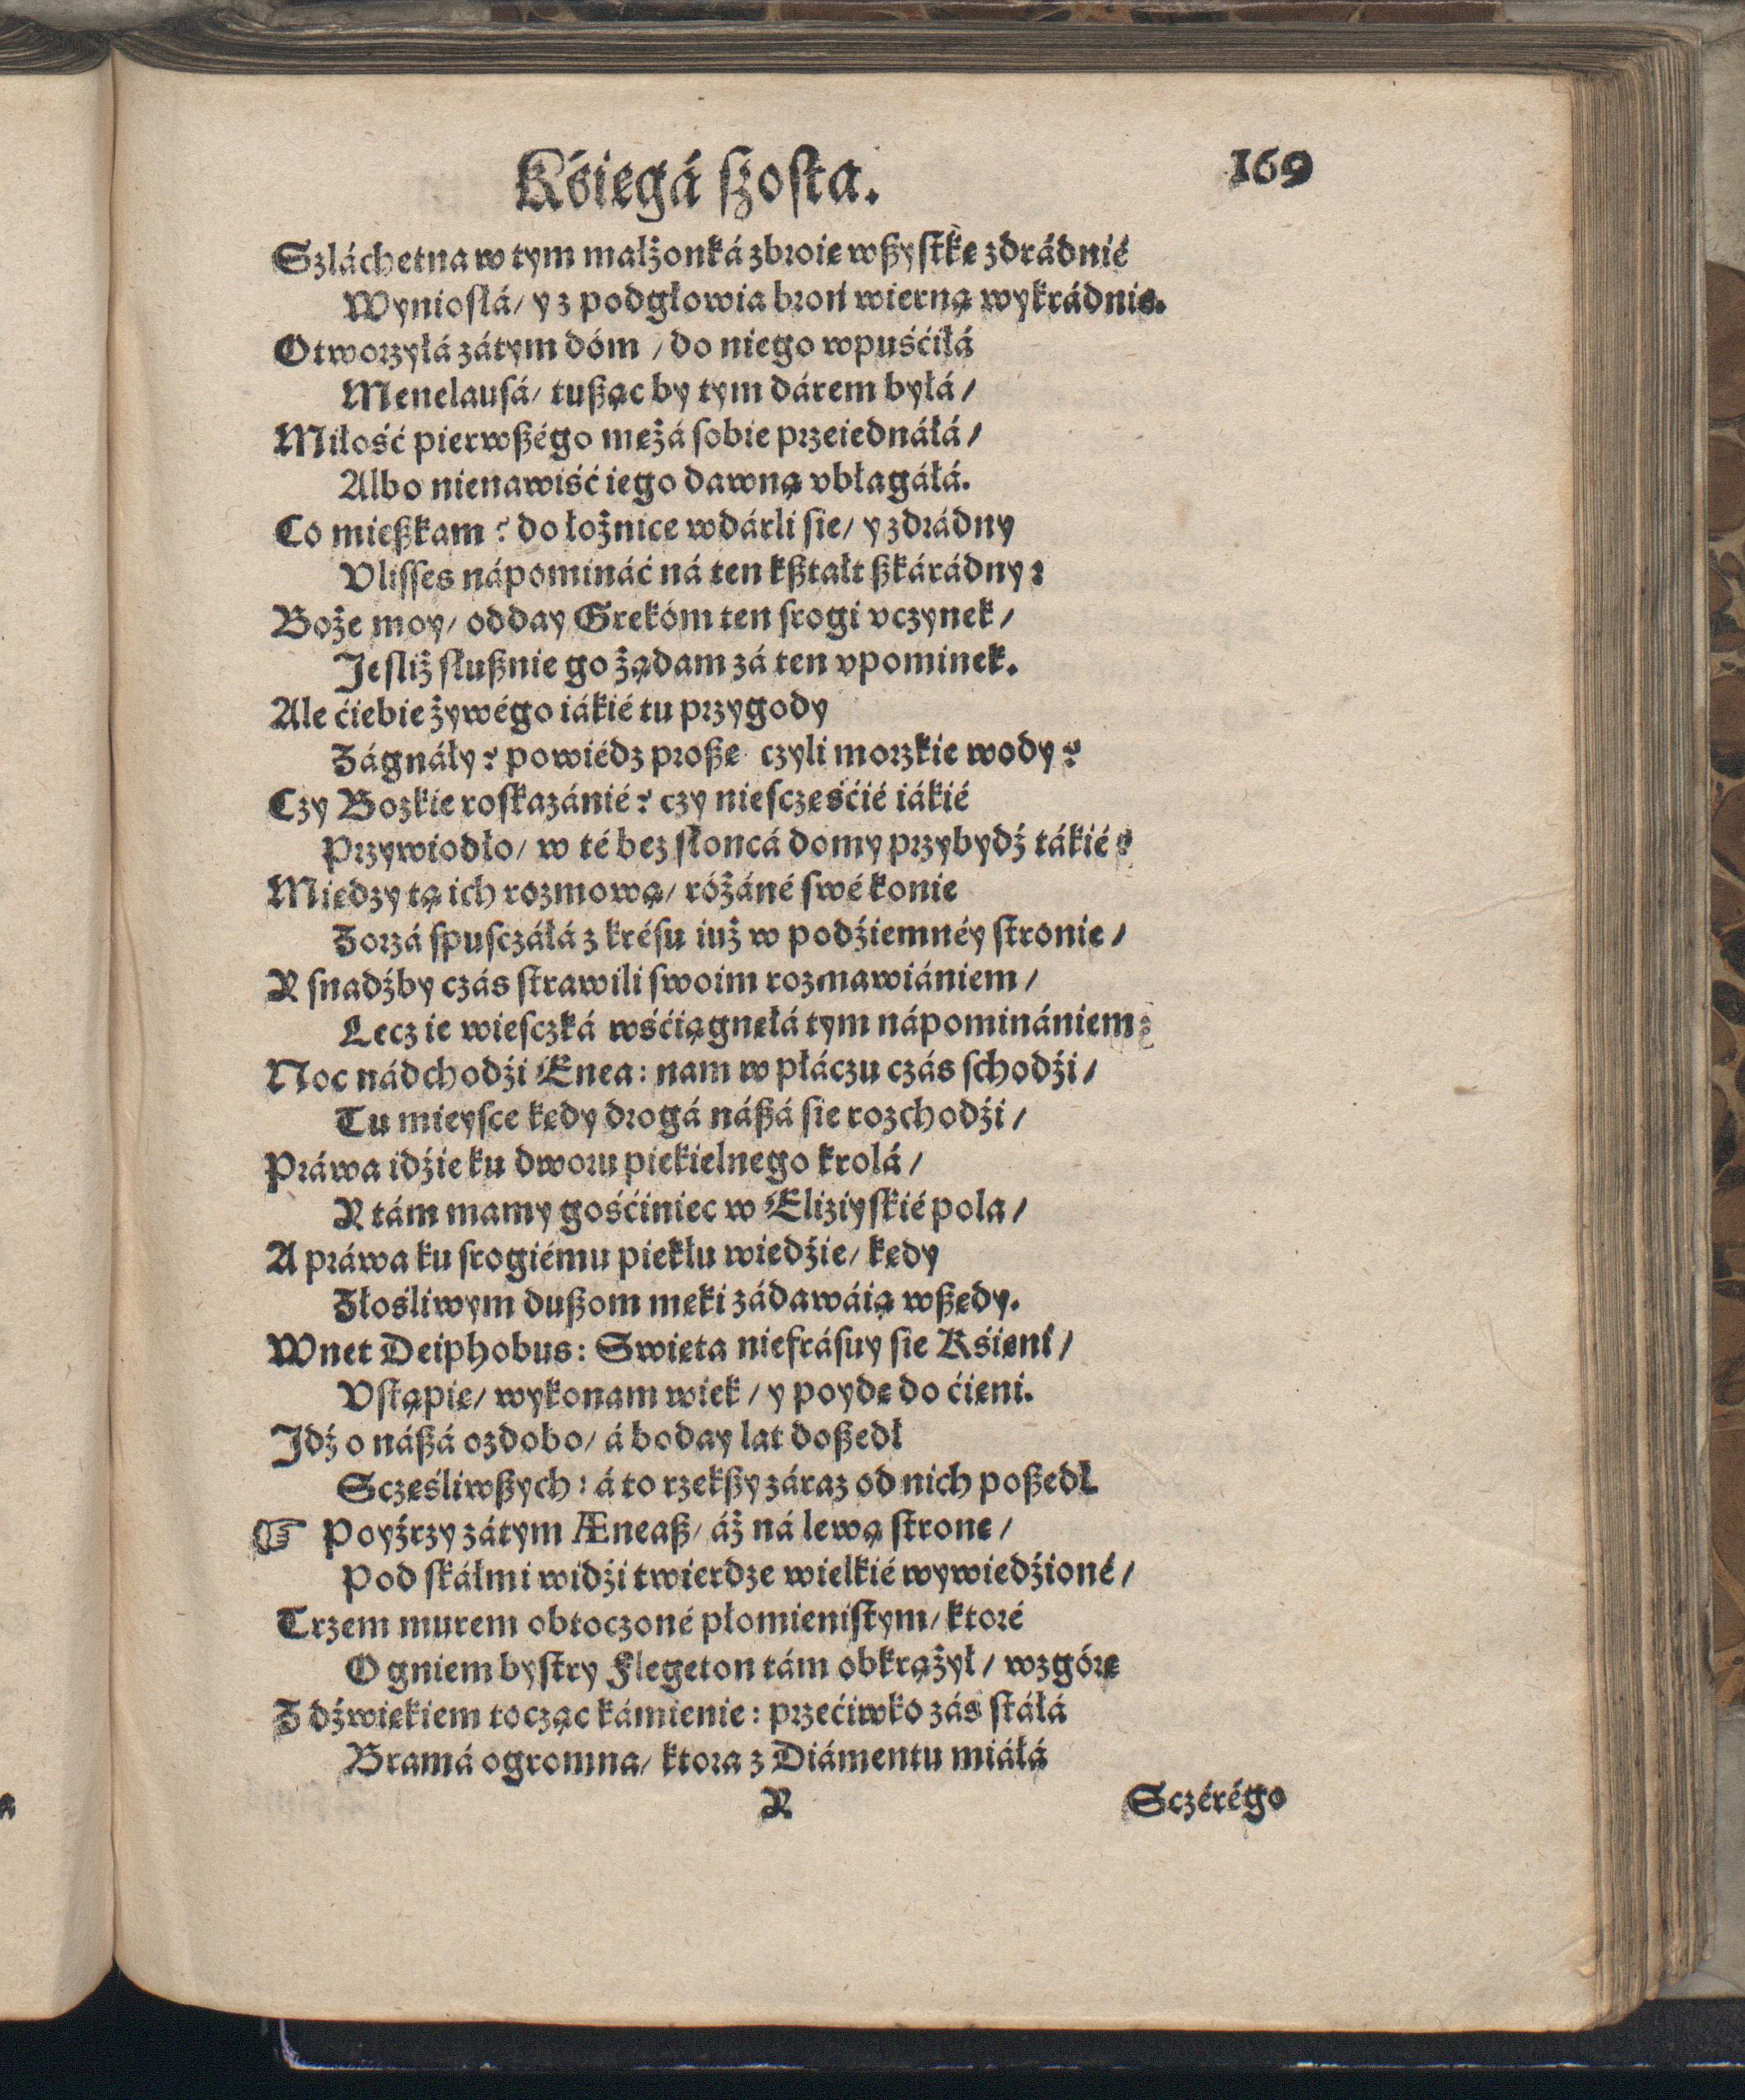 Kśięgá ſzoſta.
169
Szláchetna w tym małżonká zbroię wßyſtkę zdrádnié
Wyniosłá/ y z podgłowia broń wierną wykrádnie.
Otworzyłá zátym dóm / do niego wpuśćiłá
Menelauſá/ tußąc by tym dárem byłá /
Miłość pierwßégo mężá ſobie przeiednáłá /
Albo nienawiść iego dawną vbłagáłá.
Co mießkam? do łożnice wdárli ſie/ y zdrádny
Vlisſes nápomináć ná ten kßtałt ßkárádny?
Boże moy/ odday Grekóm ten srogi vczynek /
Jesliż słußnie go żądam zá ten vpominek.
Ale ćiebie żywégo iákié tu przygody
Zágnáły? powiédz proßę czyli morzkie wody?
Czy Bozkie roſkazánié? czy nieſczęśćié iákié
Przywiodło/ w té bez słońcá domy przybydź tákié?
Miedzy tą ich rozmową/ różáné ſwé konie
Zorzá ſpuſczáłá z krésu iuż w podźiemnéy ſtronie /
Y snadźby czás ſtrawili ſwoim rozmawiániem /
Lecz ie wieſczká wśćiągnęłá tym nápominániem:
Noc nádchodźi Enea: nam w płáczu czás ſchodźi /
Tu mieyſce kędy drogá náßá ſie rozchodźi /
Práwa idźie ku dworu piekielnego krolá /
Y tám mamy gośćiniec w Eliziyſkié pola /
A práwa ku srogiému piekłu wiedźie/ kędy
Złośliwym dußom męki zádawáią wßędy.
Wnet Deiphobus: Swięta niefráſuy ſie Kśieni /
Vſtąpię/ wykonam wiek / y poydę do ćieni.
Jdź o náßá ozdobo/ á boday lat doßedł
Sczęśliwßych: á to rzekßy záraz od nich poßedł.
☞ Poyźrzy zátym Æneaß/ áż ná lewą ſtronę /
Pod ſkáłmi widźi twierdze wielkié wywiedźioné /
Trzem murem obtoczoné płomieniſtym/ ktoré
Ogniem byſtry Flegeton tám obkrążył / wzgórę
Z dźwiękiem tocząc kámienie: przećiwko zás ſtáłá
Bramá ogromna/ ktora z Diámentu miáłá
Y
Sczérégo